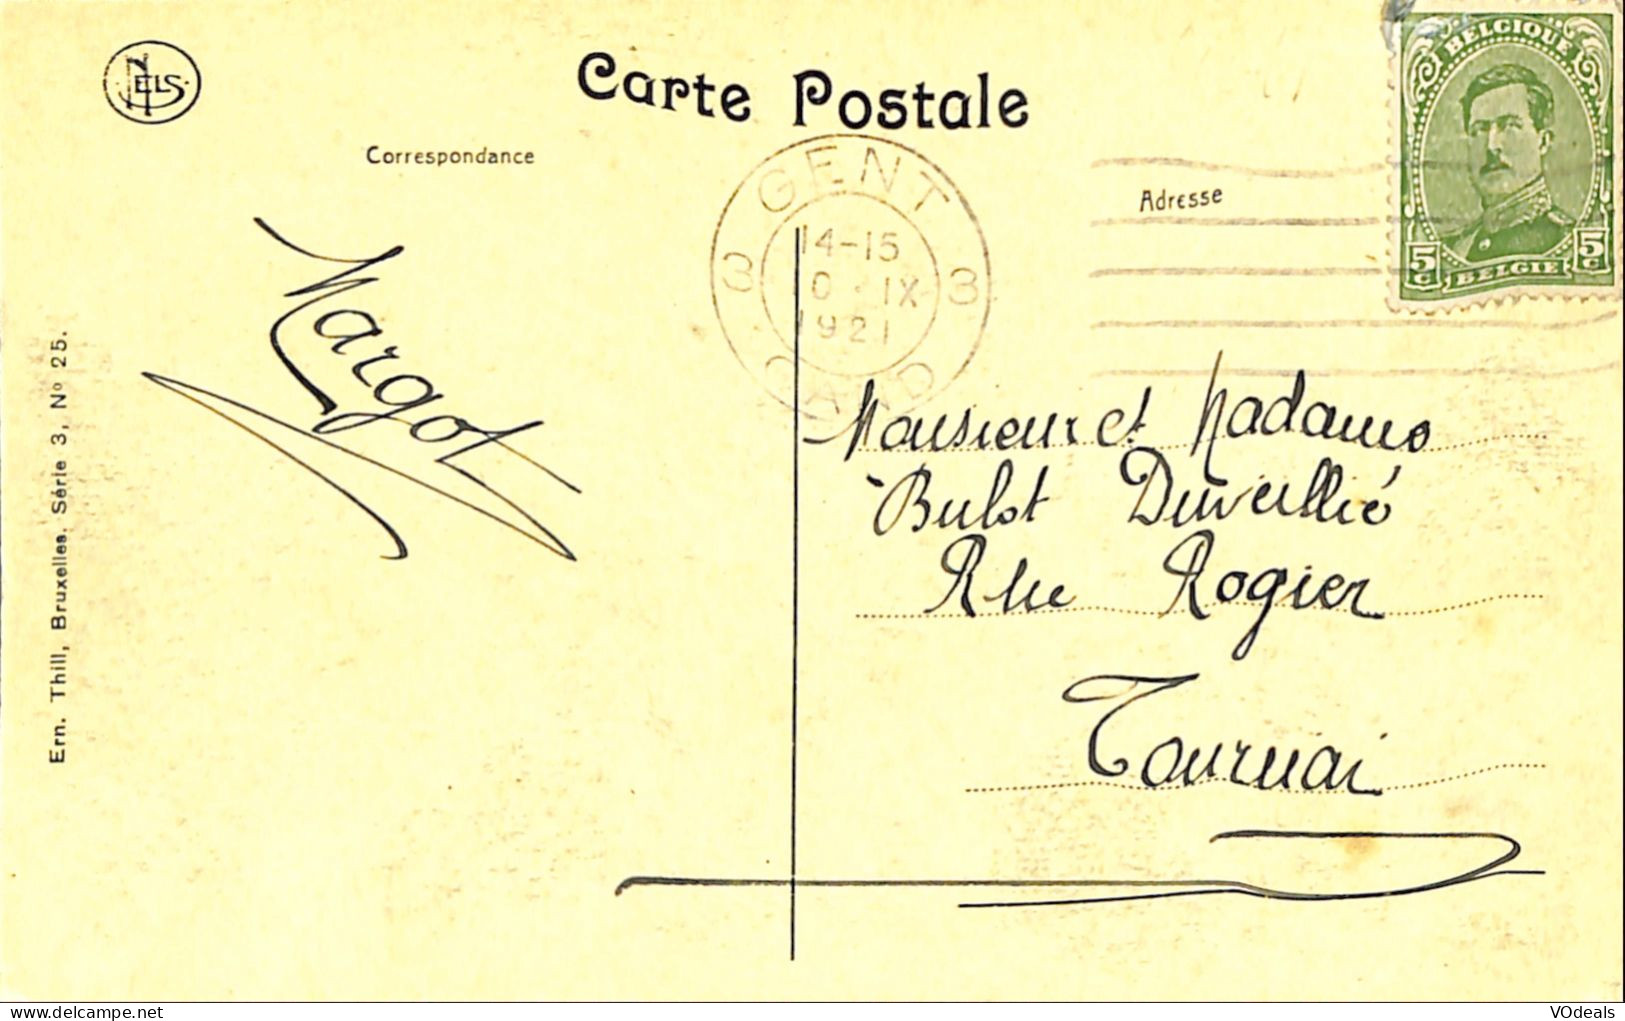 NELS
Carte Postale
Correspondance
Adresse
BELGIQUE
5c BELGIE 5c
GENT
3 14-15 3
0 IX
1921
GAND
Margot
Monsieur et Madame
Bulot Duveillié
Rue Rogier
Tournai
Ern. Thill, Bruxelles, Série 3, Nº 25.
www.delcampe.net
VOdeals